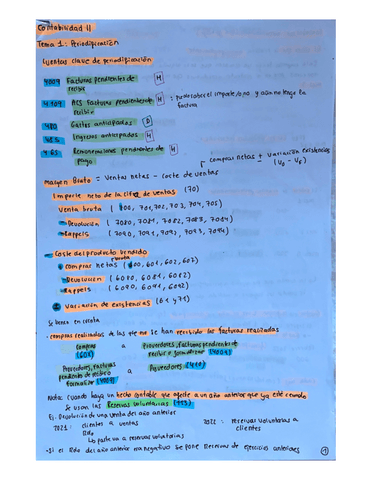 Contabilidad II
Tema 1: Periodificación
Cuentas clave de periodificación
4009 Facturas pendientes de recibir H
4109 ACS Facturas pendientes de recibir H : puede saber el importe/o no y aún no tengo la factura
480 Gastos anticipados D
485 Ingresos anticipados H
465 Remuneraciones pendientes de pago H
compras netas + variación existencias
Margen Bruto = Ventas netas - coste de ventas
Importe neto de la cifra de ventas (70)
Venta bruta (700, 701, 702, 703, 704, 705)
- Devolución (7080, 7081, 7082, 7083, 7084)
- Rappels (7090, 7091, 7092, 7093, 7094)
- Coste del producto vendido
compras netas (600, 601, 602, 607)
- Devolución (6080, 6081, 6082)
- Rappels (6090, 6091, 6092)
Variación de existencias (61 y 71)
Se tienen en cuenta
- compras realizadas de las que no se han recibido las facturas realizadas
compras (60X) a Proveedores, facturas pendientes de recibir o formalizar (4009)
Proveedores, facturas pendientes de recibir o formalizar (4009) a Proveedores (400)
Nota: cuando haya un hecho contable que afecte a un año anterior que ya esté cerrado
se usan las Reservas voluntarias (113)
Ej: Devolución de una venta del año anterior
2021: clientes a ventas
2022: reservas voluntarias a clientes
Rdo
Lo parte va a reservas voluntarias
- Si el Rdo del año anterior era negativo se pone Reservas de ejercicios anteriores
1